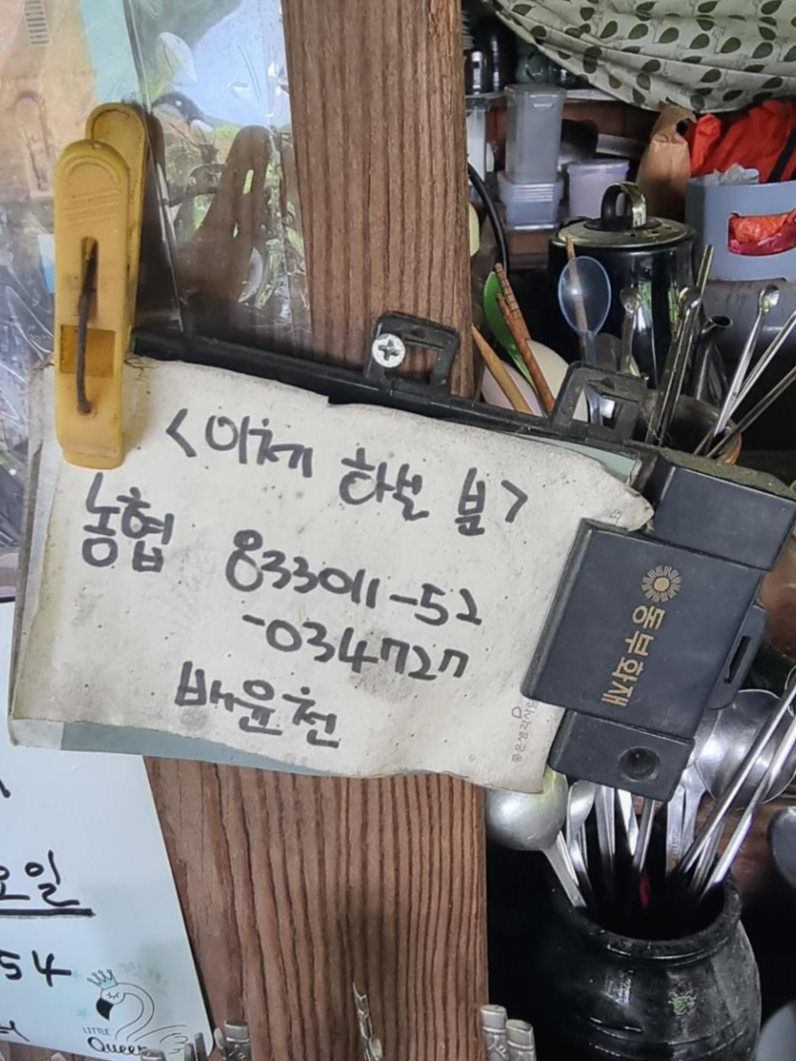 <이체 하실 분>
농협 833011-52
-034727
배윤천
동부화재
요일
54
LITTLE
Queen